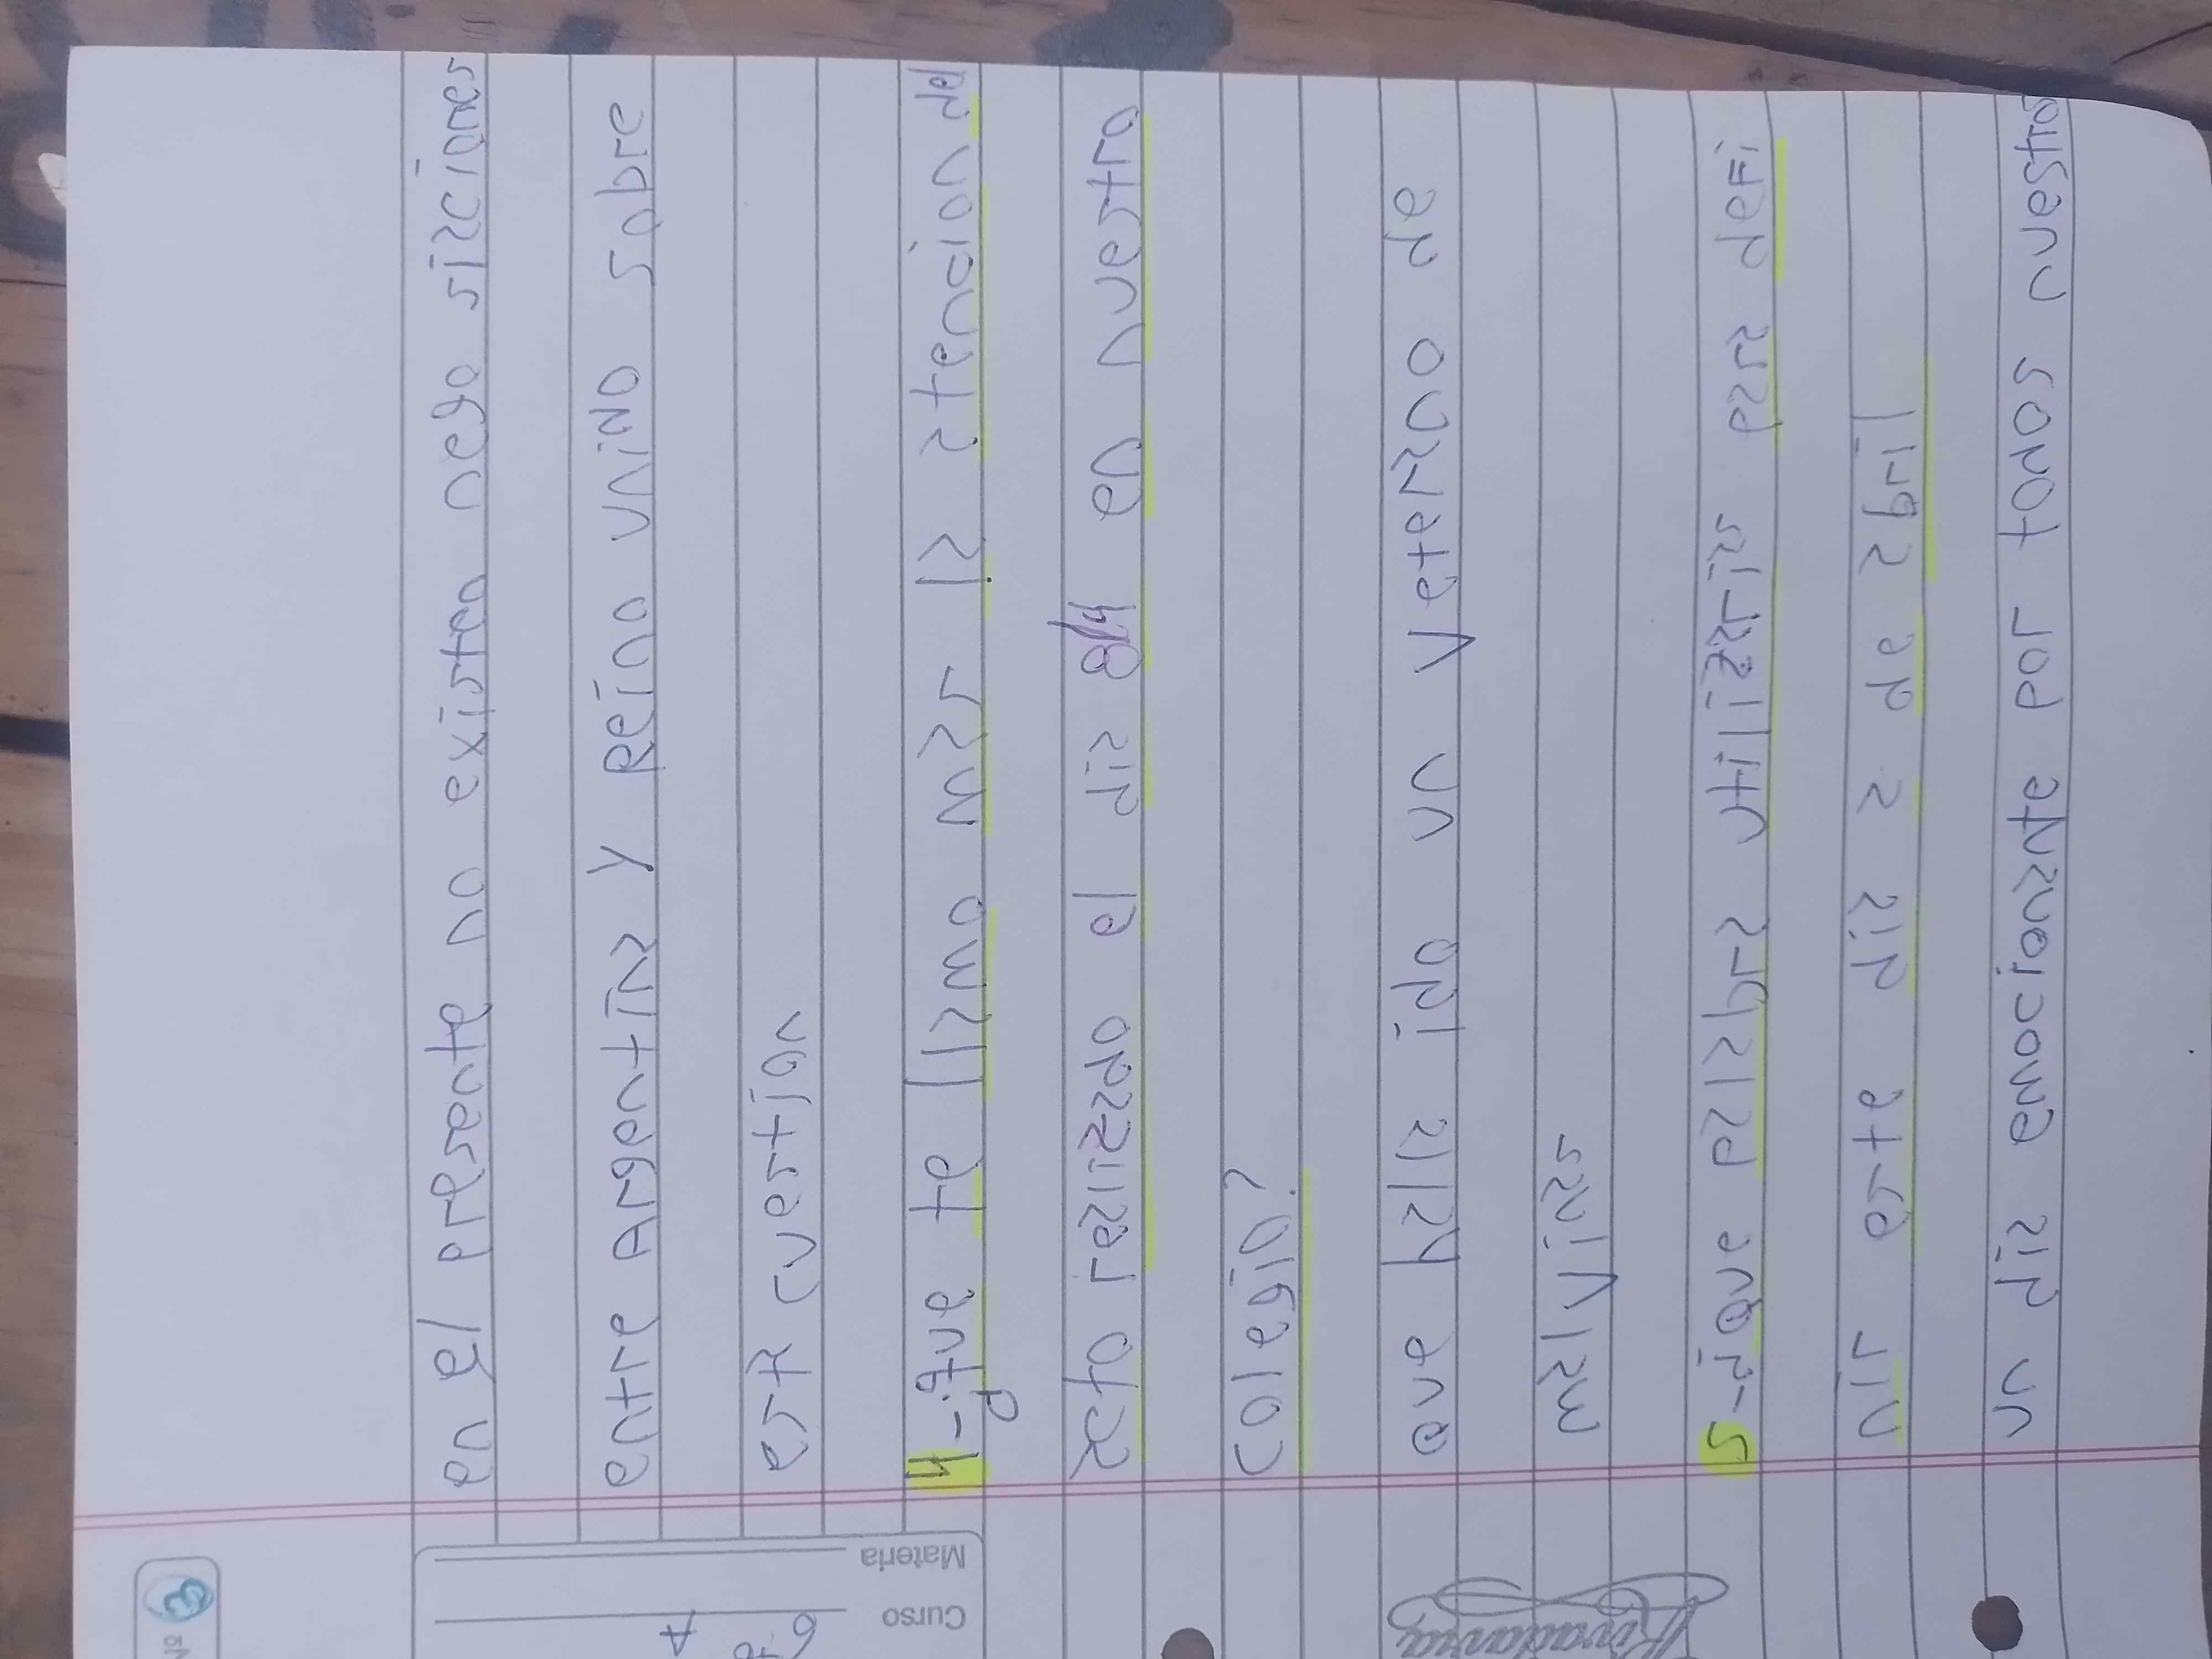 en el presente no existen negosisiciones
entre Argentina y Reino unino sobre
esta cuestion
4-¿que te llamo mas la atencion del
acto realizado el dia 8/4 en nuestro
colegio?
que halla ido un veterano de
malvinas
5-¿que palabra utilizarias para defi
nir este dia 2 de abril
un dia emocionante por todos nuestros
Nº
Curso
6
A
Materia
Rivadavia